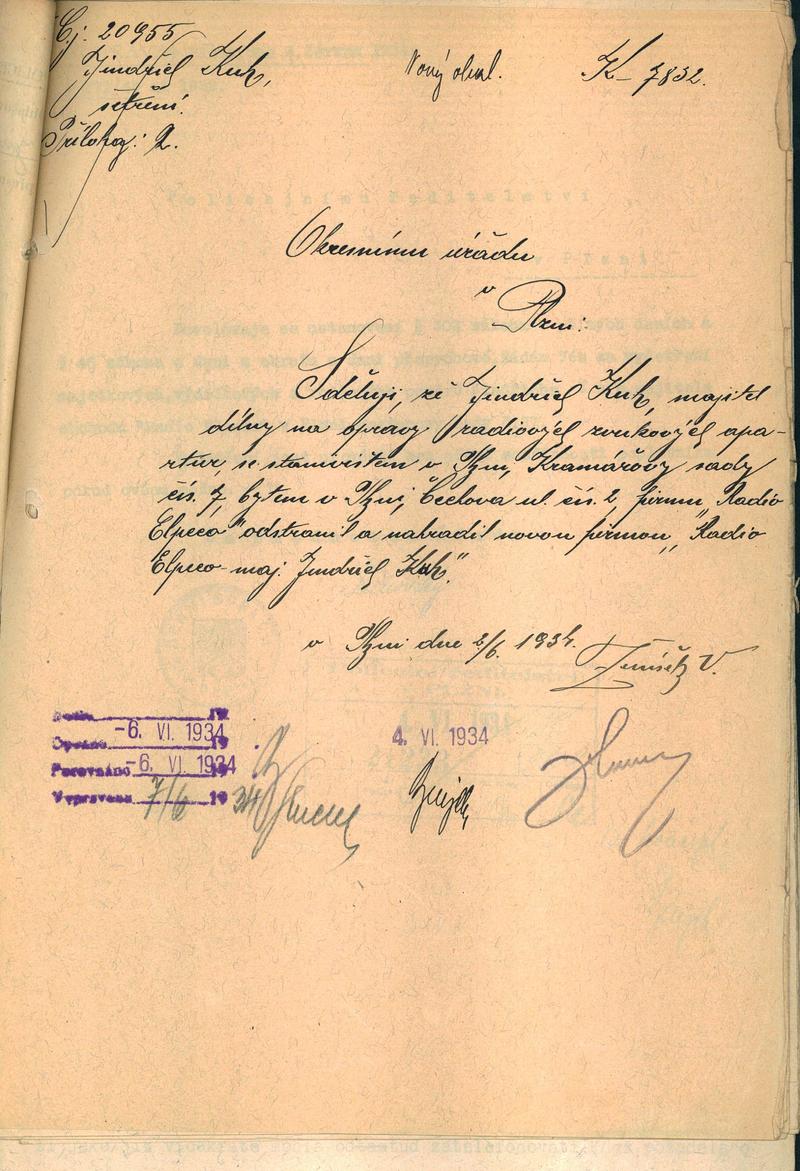 Čj. 20955
Jindřich Kuh,
šetření.
Přílohy: 2.
Nový obal.
K – 7832.
Okresnímu úřadu
v Plzni:
Sděluji, že Jindřich Kuh, majitel
dílny na opravy radiových zvukových apa-
ratur, se stanovištěm v Plzni, Kramářovy sady
čís. 7, bytem v Plzni, Čechova ul. čís. 2, firmu „Radio
Elpeco" odstranil a nahradil novou firmou „Radio
Elpeco – maj. Jindřich Kuh".
v Plzni dne 2/6. 1934.
Došlo 19
Opsáno -6. VI. 1934
Porovnáno -6. VI. 1934
Vypraveno 7/6 1934
4. VI. 1934